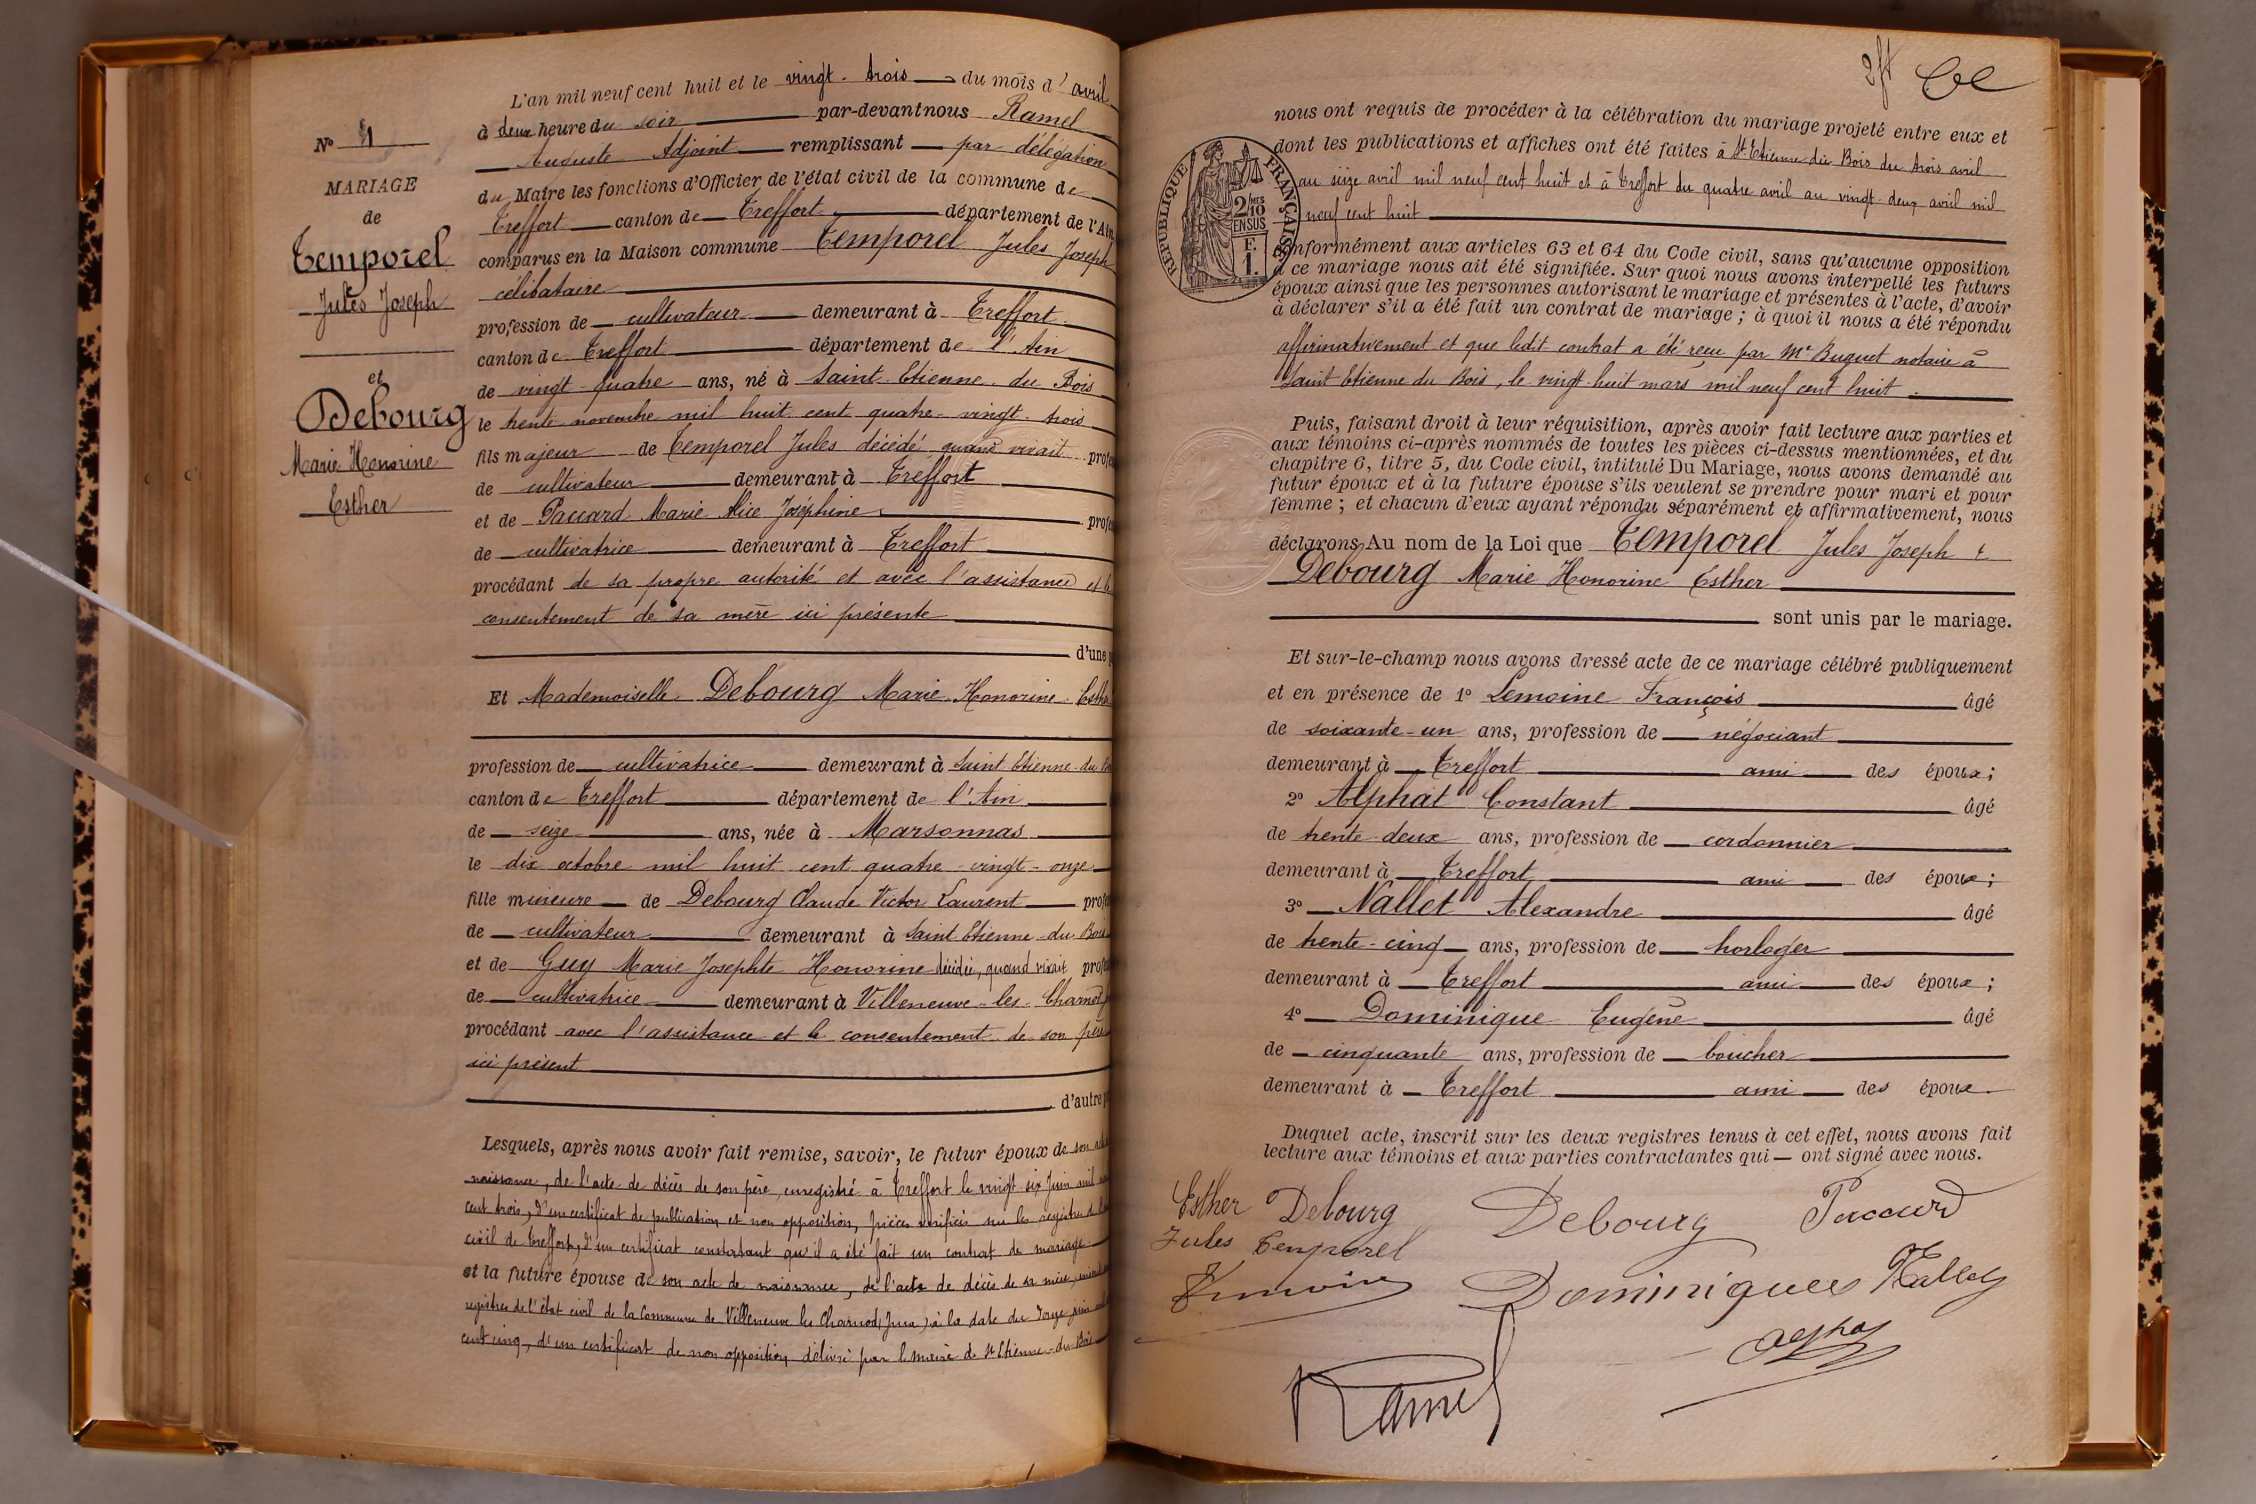 L'an mil neuf cent huit et le vingt-trois du mois d'avril
à deux heure du soir par-devant nous Ramel
Auguste Adjoint remplissant par délégation
du Maire les fonctions d'Officier de l'état civil de la commune de
Treffort canton de Treffort département de l'Ain
comparus en la Maison commune Temporel Jules Joseph
célibataire
profession de cultivateur demeurant à Treffort
canton de Treffort département de l'Ain
de vingt-quatre ans, né à Saint-Etienne-du-Bois
le trente novembre mil huit cent quatre-vingt-trois
fils majeur de Temporel Jules décédé quand vivait profe
de cultivateur demeurant à Treffort
et de Pauard Marie Alice Joséphine profe
de cultivatrice demeurant à Treffort
procédant de sa propre autorité et avec l'assistance et le
consentement de sa mère ici présente
d'une p
Et Mademoiselle Debourg Marie Honorine Esther
profession de cultivatrice demeurant à Saint Etienne-du-Bois
canton de Treffort département de l'Ain
de seize ans, née à Marsonnas
le dix octobre mil huit cent quatre-vingt-onze
fille mineure de Debourg Claude Victor Laurent profe
de cultivateur demeurant à Saint Etienne-du-Bois
et de Guy Marie Josephte Honorine décédée, quand vivait profe
de cultivatrice demeurant à Villeneuve-les-Charnod
procédant avec l'assistance et le consentement de son père
ici présent
d'autre p
Lesquels, après nous avoir fait remise, savoir, le futur époux de son acte
naissance, de l'acte de décès de son père, enregistré à Treffort le vingt six Juin mil
cent trois, d'un certificat de publication et non opposition, pièces vérifiées sur les registres de
civil de Treffort, d'un certificat constatant qu'il a été fait un contrat de mariage
et la future épouse de son acte de naissance, de l'acte de décès de sa mère,
registres de l'état civil de la Commune de Villeneuve les Charnod (Jura) à la date du douze juin
cent cinq, d'un certificat de non opposition délivré par le maire de St Etienne-du-Bois
N°
MARIAGE
de
Temporel
Jules Joseph
et
Debourg
Marie Honorine
Esther
nous ont requis de procéder à la célébration du mariage projeté entre eux et
dont les publications et affiches ont été faites à St Etienne du Bois du trois avril
au seize avril mil neuf cent huit et à Treffort du quatre avril au vingt-deux avril mil
neuf cent huit
RÉPUBLIQUE FRANÇAISE
2/10
EN SUS
F.
1.
conformément aux articles 63 et 64 du Code civil, sans qu'aucune opposition
à ce mariage nous ait été signifiée. Sur quoi nous avons interpellé les futurs
époux ainsi que les personnes autorisant le mariage et présentes à l'acte, d'avoir
à déclarer s'il a été fait un contrat de mariage ; à quoi il nous a été répondu
affirmativement et que ledit contrat a été reçu par Me Buguet notaire à
Saint Etienne du Bois, le vingt-huit mars mil neuf cent huit.
Puis, faisant droit à leur réquisition, après avoir fait lecture aux parties et
aux témoins ci-après nommés de toutes les pièces ci-dessus mentionnées, et du
chapitre 6, titre 5, du Code civil, intitulé Du Mariage, nous avons demandé au
futur époux et à la future épouse s'ils veulent se prendre pour mari et pour
femme ; et chacun d'eux ayant répondu séparément et affirmativement, nous
déclarons Au nom de la Loi que Temporel Jules Joseph &
Debourg Marie Honorine Esther
sont unis par le mariage.
Et sur-le-champ nous avons dressé acte de ce mariage célébré publiquement
et en présence de 1° Lemoine François âgé
de soixante-un ans, profession de négociant
demeurant à Treffort ami des époux ;
2° Alphat Constant âgé
de trente-deux ans, profession de cordonnier
demeurant à Treffort ami des époux ;
3° Nallet Alexandre âgé
de trente-cinq ans, profession de horloger
demeurant à Treffort ami des époux ;
4° Dominique Eugène âgé
de cinquante ans, profession de boucher
demeurant à Treffort ami des époux
Duquel acte, inscrit sur les deux registres tenus à cet effet, nous avons fait
lecture aux témoins et aux parties contractantes qui — ont signé avec nous.
Esther Debourg Debourg Pacard
Jules Temporel
Dominique Nallet
Ramel